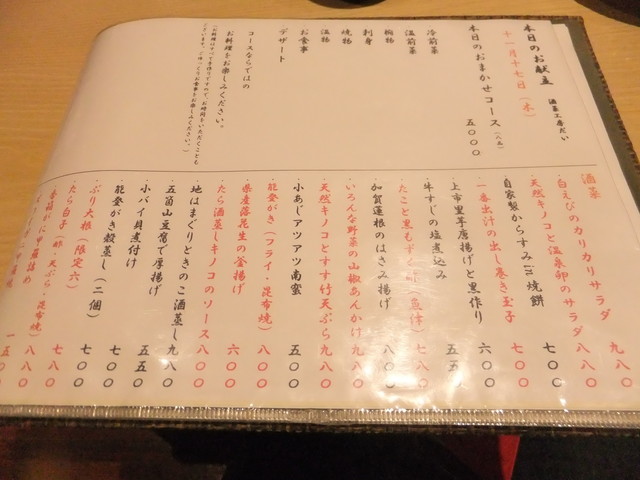 本日のお献立 酒菜工房だい
十一月十七日(木)
本日のおまかせコース(八品)
五〇〇〇
冷前菜
温前菜
椀物
刺身
焼物
温物
お食事
デザート
コースならではの
お料理をお楽しみください。
酒菜
白えびのカリカリサラダ 九八〇
天然キノコと温泉卵のサラダ 八八〇
自家製からすみin焼餅 七〇〇
一番出汁の出し巻き玉子 七〇〇
上市里芋唐揚げと黒作り 六〇〇
牛すじの塩煮込み 五五〇
たこと黒もずく 七八〇
加賀蓮根のはさみ揚げ 八〇〇
いろんな野菜の山椒あんかけ 九八〇
天然キノコとすす竹天ぷら 九八〇
小あじアツアツ南蛮 五〇〇
能登がき(フライ・昆布焼) 八〇〇
県産落花生の釜揚げ 六〇〇
たら酒蒸しキノコのソース 八〇〇
地はまぐりときのこ酒蒸し 九八〇
五箇山豆腐で厚揚げ 五五〇
小バイ貝煮付け 五五〇
能登がき殻蒸し(二個) 七〇〇
ぶり大根(限定六) 七〇〇
たら白子(酢・天ぷら・昆布焼) 七八〇
香箱がに甲羅詰め 八八〇